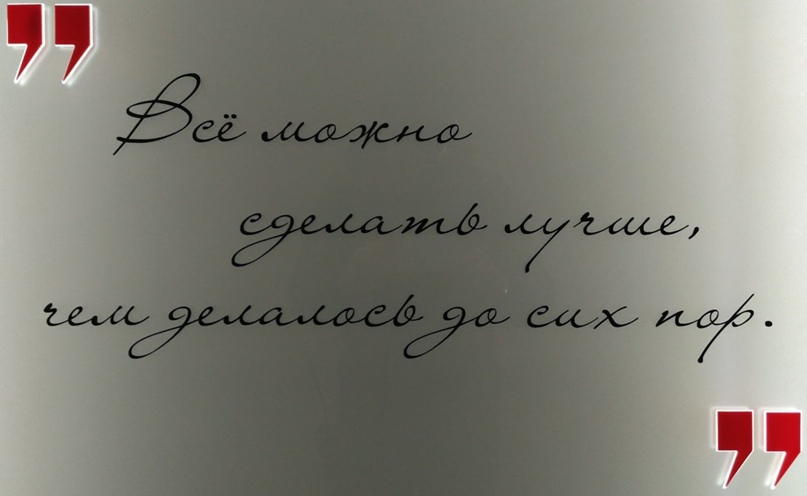 Всё можно
сделать лучше,
чем делалось до сих пор.